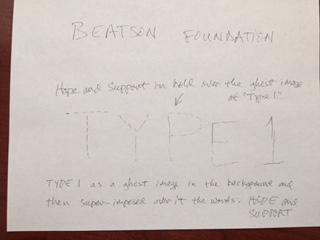 BEATSON FOUNDATION
Hope and Support in bold over the ghost image
of "Type 1."
TYPE 1
TYPE 1 as a ghost image in the background and
then super-imposed over it the words. HOPE and
SUPPORT